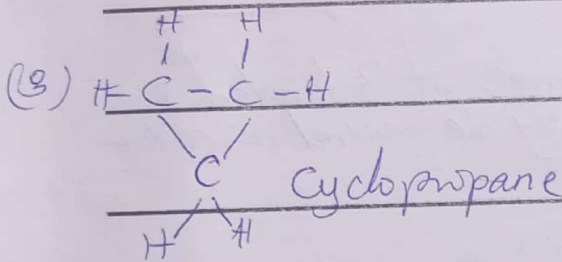 H H
(3) H-C-C-H
C Cyclopropane
H H